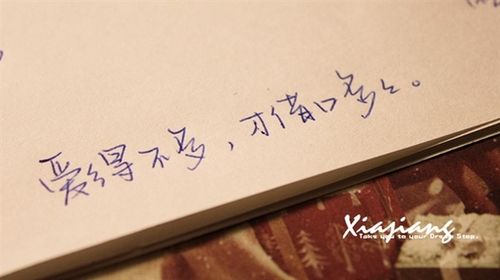 爱得不多，才借口多多。
Xiajiang
Take you to your Dream Step.